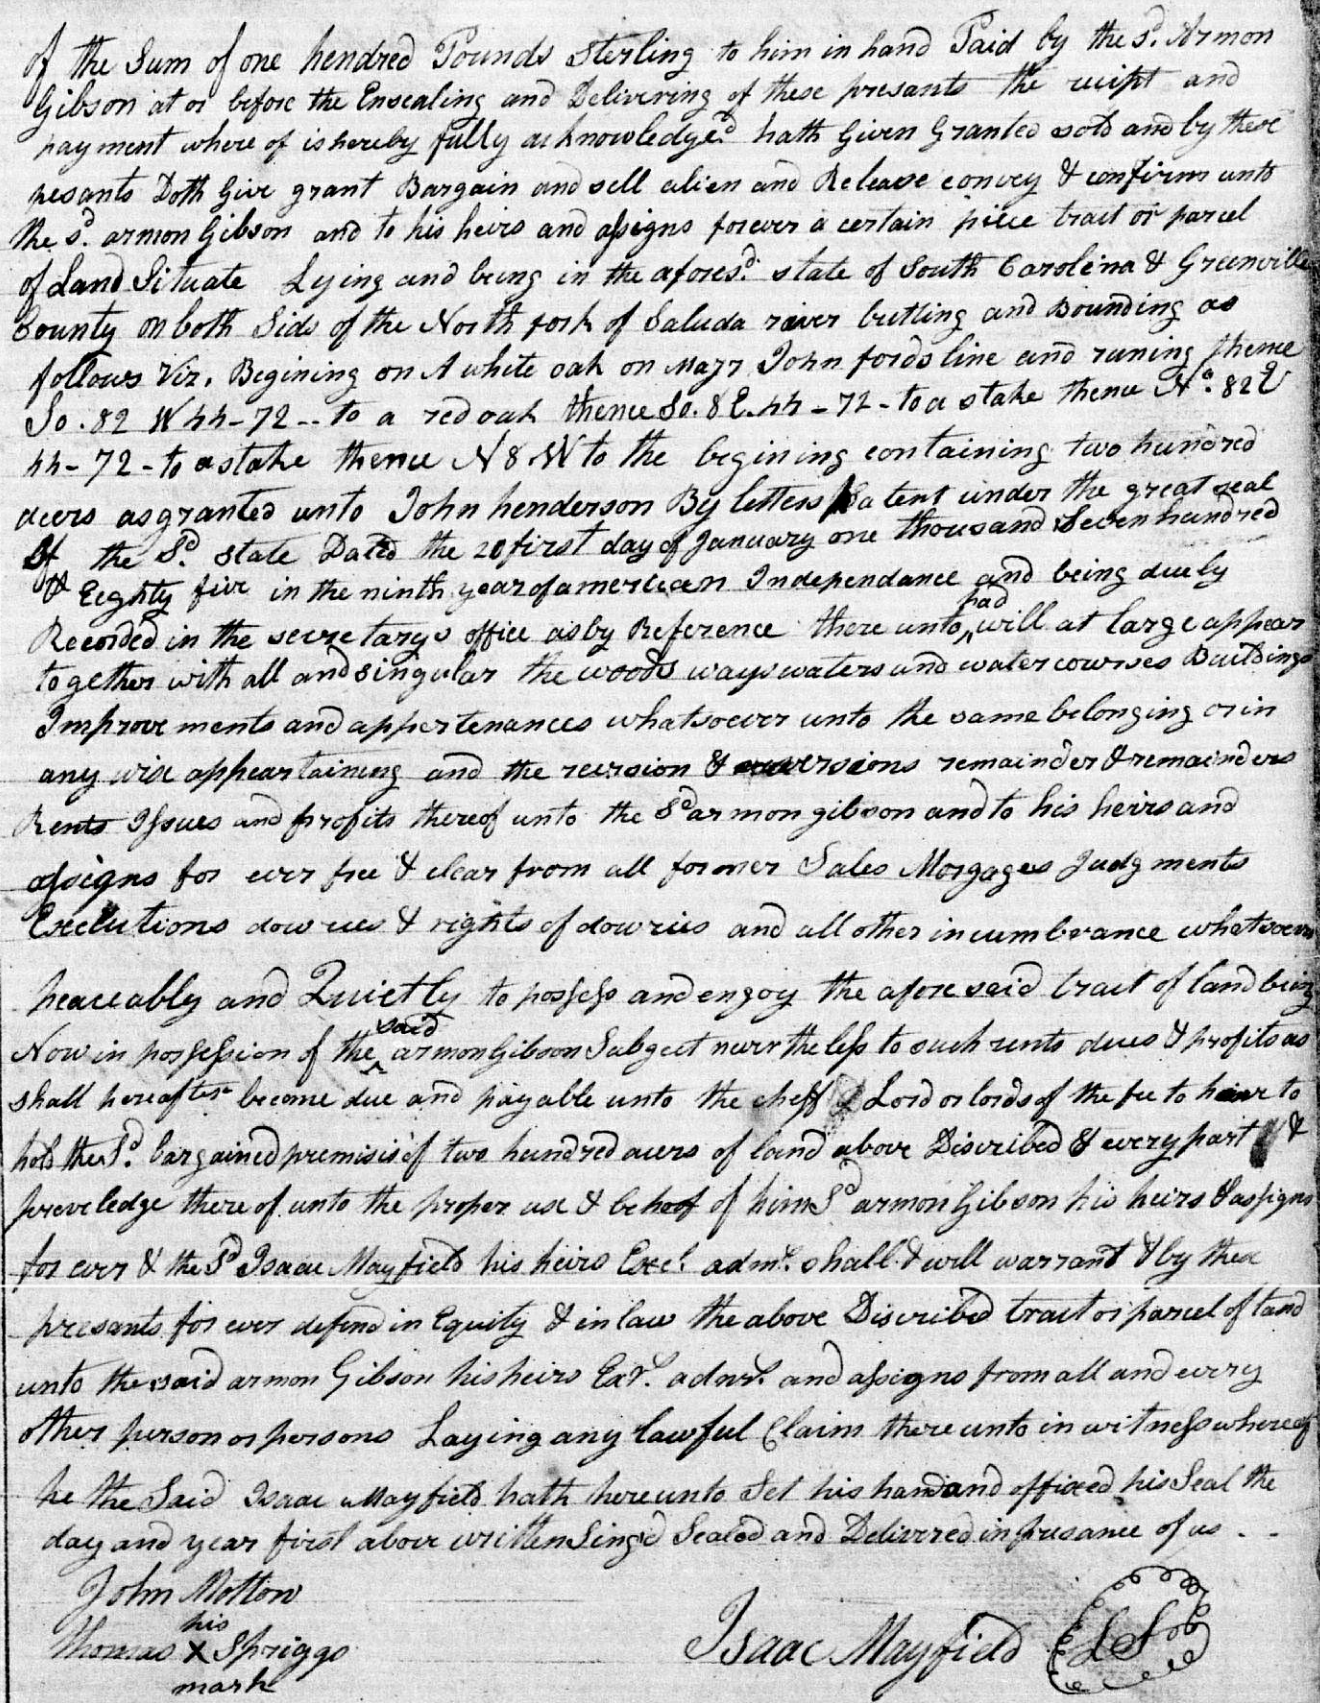 of the Sum of one hendred Pounds Sterling to him in hand Paid by the sd. Armon
Gibson at or before the Ensealing and Delivering of these presants the recipt and
payment where of is hereby fully acknowledged hath Given Granted sold and by these
pesants Doth Give grant Bargain and sell alien and Release convey & confirm unto
the sd. armon Gibson and to his heirs and assigns forever a certain piece tract or parcel
of Land Situate Lying and being in the aforesd. state of South Carolina & Greenville
County on both Side of the North fork of Saluda raiver butting and Bounding as
follows Viz. Begining on A white oak on Majr John fords line and runing thence
So. 82 W 44-72-- to a red oak thence So. 8 E. 44-72- to a stake thence No. 82 E
44-72- to a stake thence N 8 W to the begining containing two hundred
acers as granted unto John henderson By letters Patent under the great seal
Of the Sd. state Dated the 20 first day of January one thousand Seven hundred
& Eeighty five in the ninth year of american Independance and being duely
Recorded in the secretarys office as by Reference there unto had will at large appear
together with all and singular the woods ways waters and water courses Buildings
Improve ments and appertenances whatsoever unto the same belonging or in
any wise appeartaining and the reersion & reversions remainder & remainders
Rents Issues and profits thereof unto the Sd armon gibson and to his heirs and
assigns for ever free & clear from all former Sales Morgages Judgments
Executions dowries & rights of dowries and all other incumbrance whatsoever
peaceably and Quietly to possess and enjoy the afore said tract of land being
Now in possession of the said armon Gibson Subject never the less to such rents dues & profits as
shall hereafter become due and payable unto the cheff Lord or lords of the fee to have to
hold the Sd. bargained premisis of two hundred acers of land above Discribed & every part &
preveledge there of unto the proper use & behoof of him Sd armon Gibson his heirs & assigns
for ever & the Sd Isaac Mayfield his heirs Exec. adm. shall & will warrant & by these
presants for ever defend in Equity & in law the above Discribed tract or parcel of land
unto the said armon Gibson his heirs Exr. admr. and assigns from all and every
other person or persons Laying any lawful Claim there unto in witness whereof
he the Said Isaac Mayfield hath here unto Set his hand and affixed his Seal the
day and year first above written Singd Sealed and Delivered in prusance of us - -
John Motlow
Thomas his X mark Spriggs
Isaac Mayfield LS